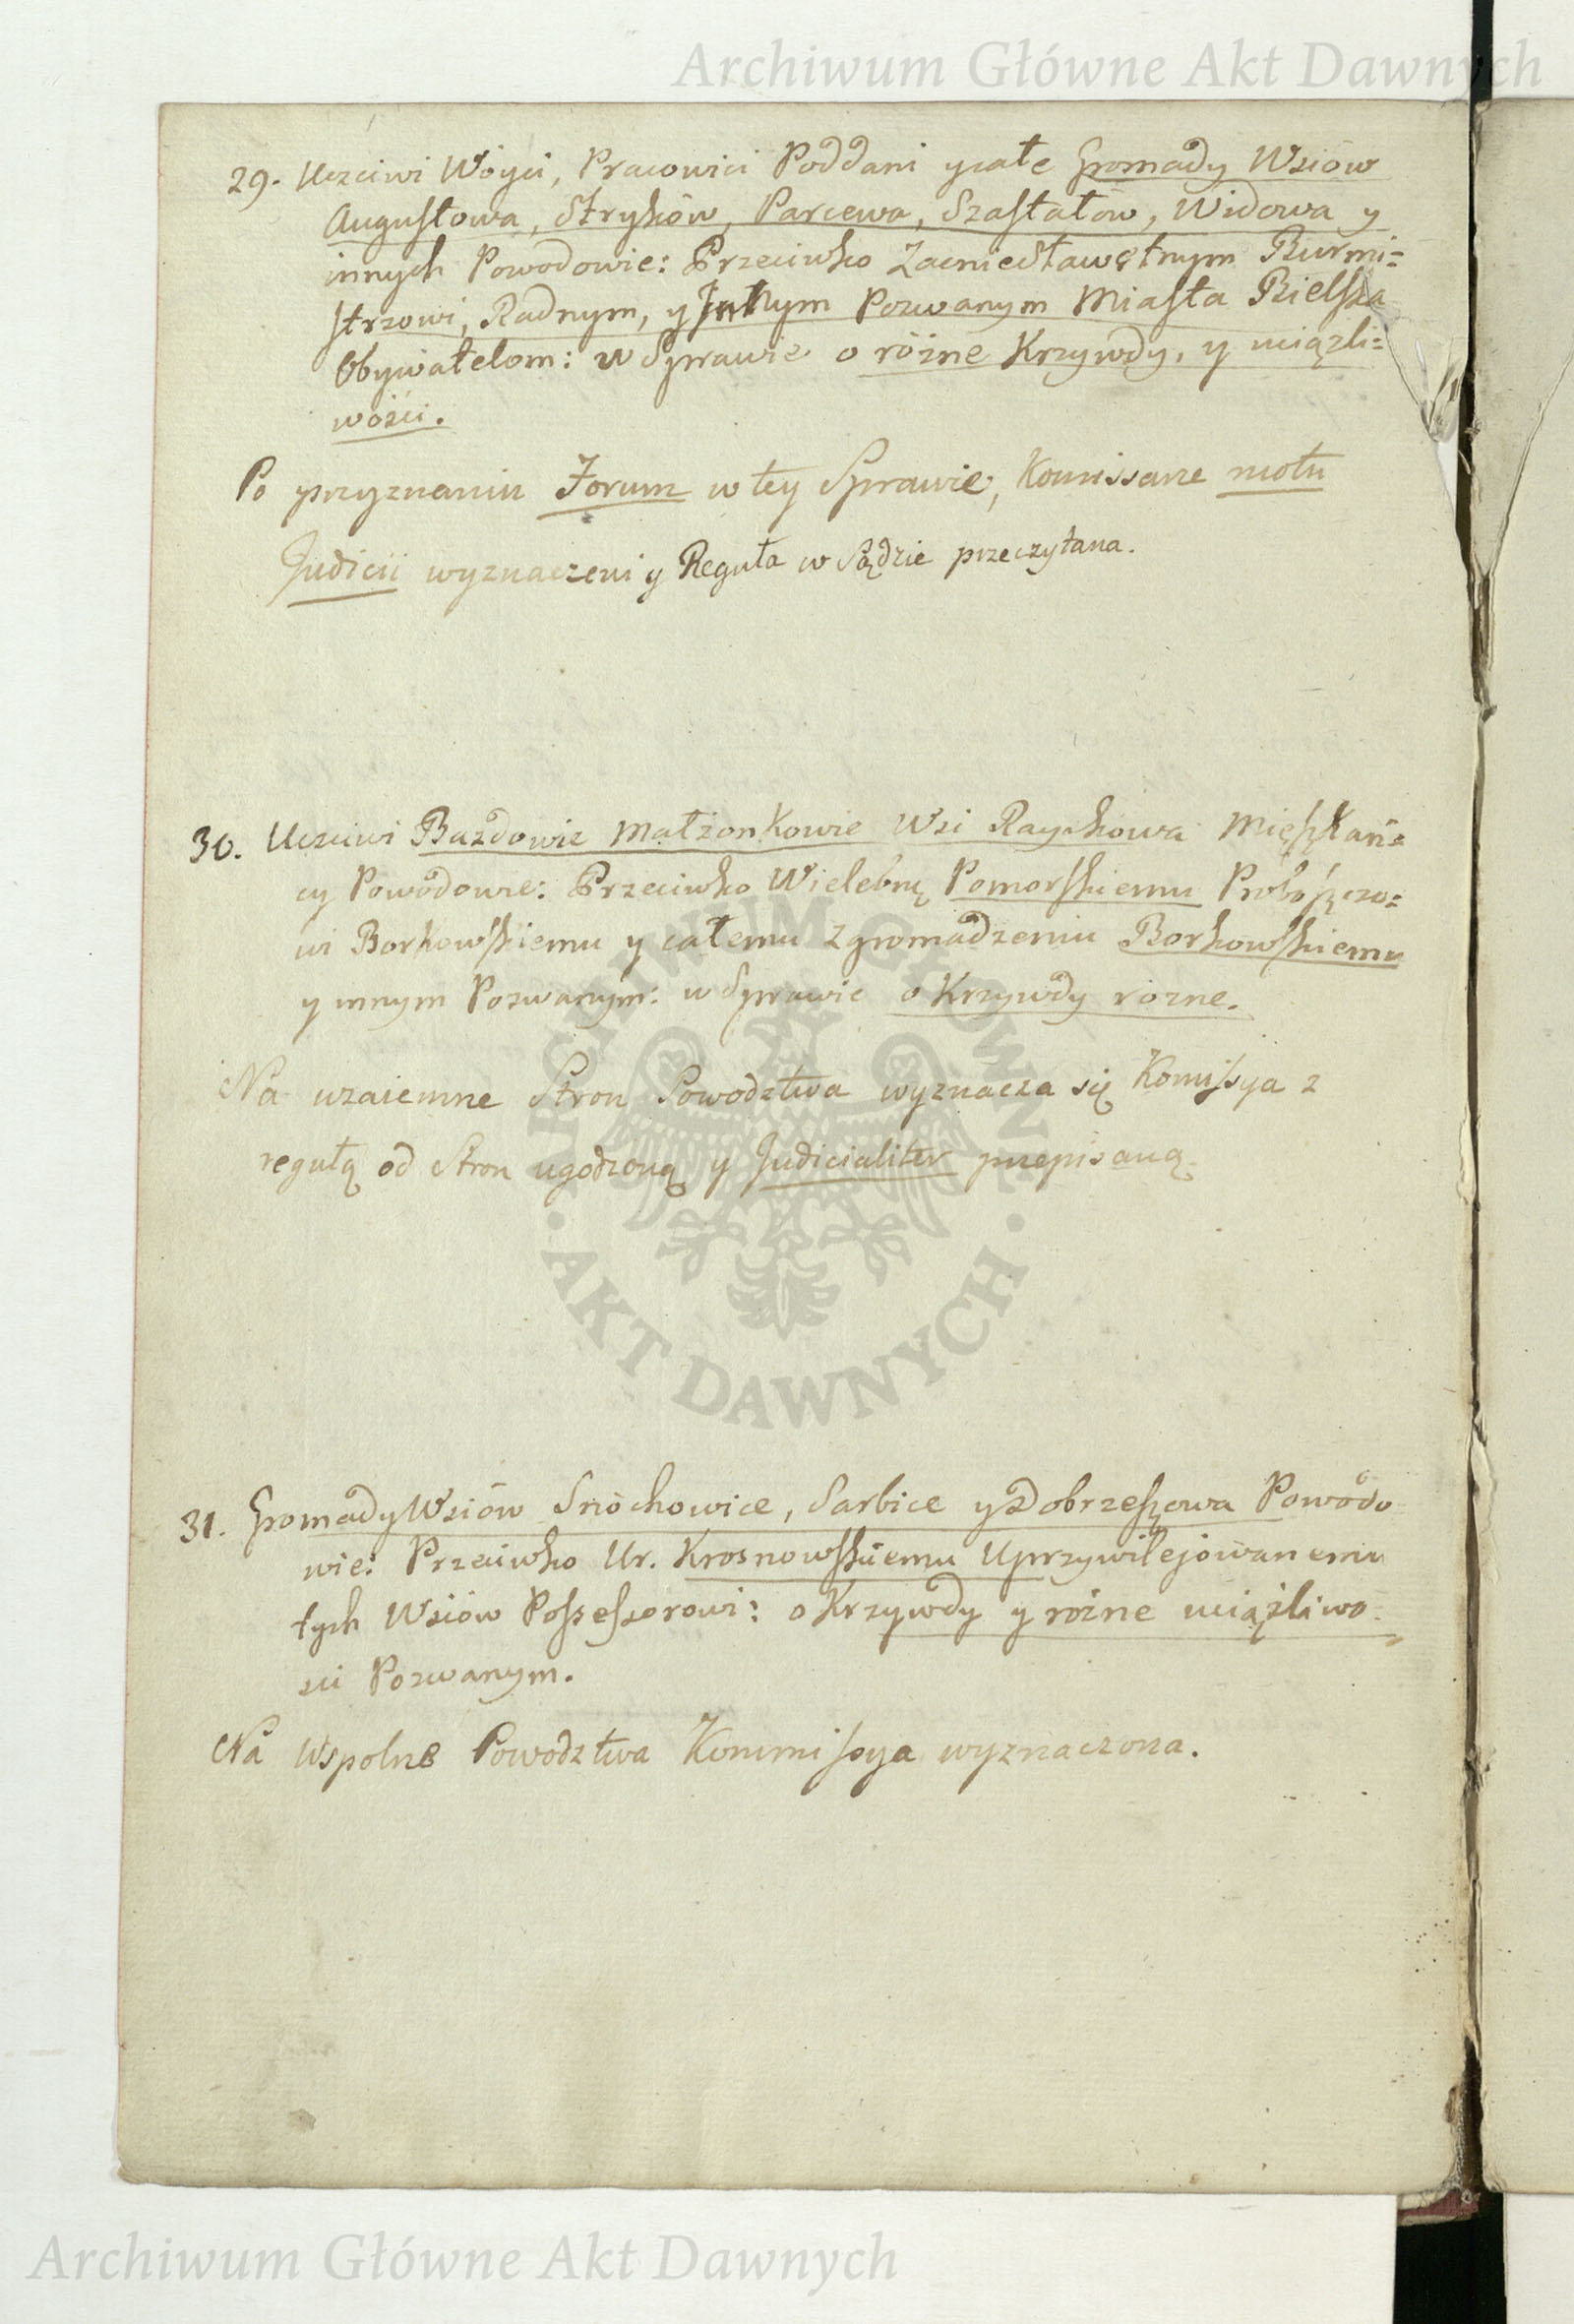 Archiwum Główne Akt Dawnych
29. Uczciwi Wóyci, Pracowici Poddani y całe Gromady Wsiów
Augustowa, Stryków, Parcewa, Szastałow, Widowa y
innych Powodowie: Przeciwko Zacnie Sławętnym Burmi=
strzowi, Radnym, y Innym Pozwanym Miasta Bielska
Obywatelom: w Sprawie o różne Krzywdy, y uciążli=
wości.
Po przyznaniu Forum w tey Sprawie, Komissarze motu
Judicii wyznaczeni y Reguła w Sądzie przeczytana.
30. Uczciwi Bazdowie Małżonkowie Wsi Raychowa Mięszkań=
cy Powodowie: Przeciwko Wielebnę Pomorskiemu Proboszczo=
wi Borkowskiemu y całemu Zgromadzeniu Borkowskiemu
y innym Pozwanym: w Sprawie o Krzywdy rozne.
Na wzaiemne Stron Powodztwa wyznacza się Komissya z
regułą od Stron ugodzoną y Judicialiter przepisaną.
ARCHIWUM GŁÓWNE
· AKT DAWNYCH ·
31. Gromady Wsiów Snochowice, Sarbice y Dobrzeszowa Powodo
wie: Przeciwko Ur. Krosnowskiemu Uprzywilejowanemu
tych Wsiów Possessorowi: o Krzywdy y rożne uciążliwo=
sci Pozwanym.
Na Wspolne Powodztwa Kommissya wyznaczona.
Archiwum Główne Akt Dawnych